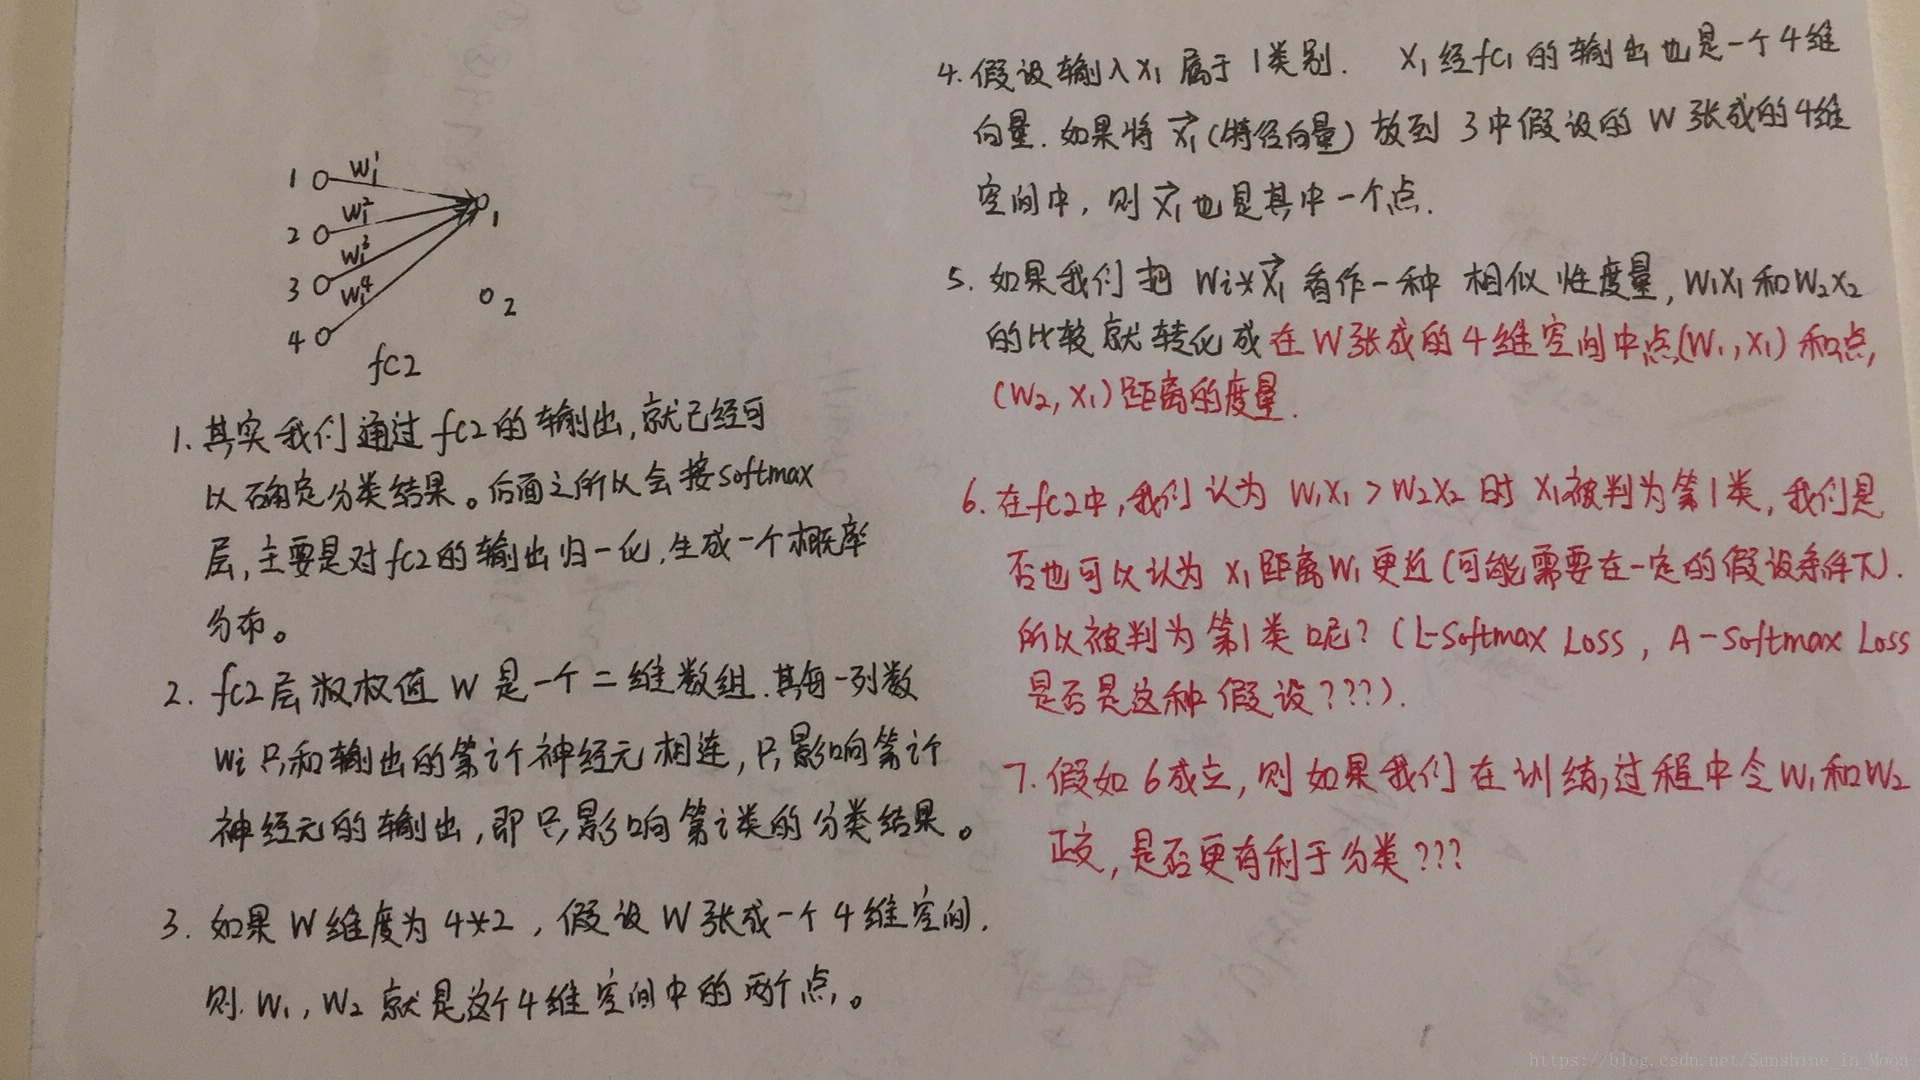 1 W₁¹
2 W₁²
3 W₁³
4 W₁⁴
1
2
fc2
1. 其实我们通过fc2的输出,就已经可
以确定分类结果。后面之所以会接softmax
层,主要是对fc2的输出归一化,生成一个概率
分布。
2. fc2层权值W是一个二维数组.其每一列数
Wi只和输出的第i个神经元相连,只影响第i个
神经元的输出,即只影响第i类的分类结果。
3. 如果W维度为4*2,假设W张成一个4维空间.
则.W₁,W₂就是这个4维空间中的两个点。
4. 假设输入X₁属于1类别. X₁经fc₁的输出也是一个4维
向量.如果将X₁(特径向量)放到3中假设的W张成的4维
空间中,则X₁也是其中一个点.
5. 如果我们把Wi*X₁看作一种相似性度量,W₁X₁和W₂X₂
的比较就转化成在W张成的4维空间中点(W₁,X₁)和点,
(W₂,X₁)距离的度量.
6. 在fc2中,我们认为W₁X₁>W₂X₂时X₁被判为第1类,我们是
否也可以认为X₁距离W₁更近(可能需要在一定的假设条件下).
所以被判为第1类呢?(L-Softmax Loss, A-Softmax Loss
是否是这种假设???).
7. 假如6成立,则如果我们在训练过程中令W₁和W₂
正交,是否更有利于分类???
https://blog.csdn.net/Sunshine_in_Moon